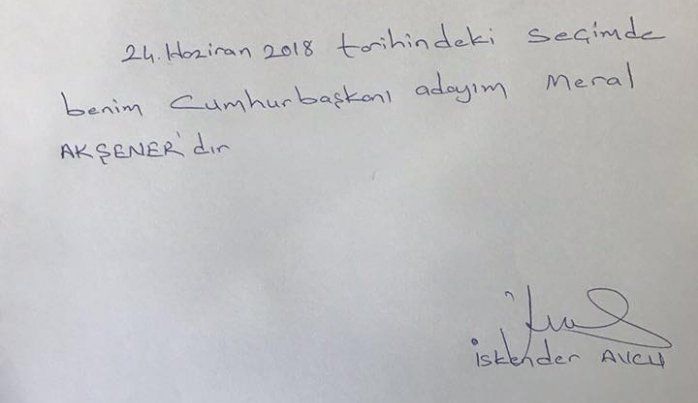 24. Haziran 2018 tarihindeki seçimde
benim Cumhurbaşkanı adayım Meral
AKŞENER'dir
İskender AVCU